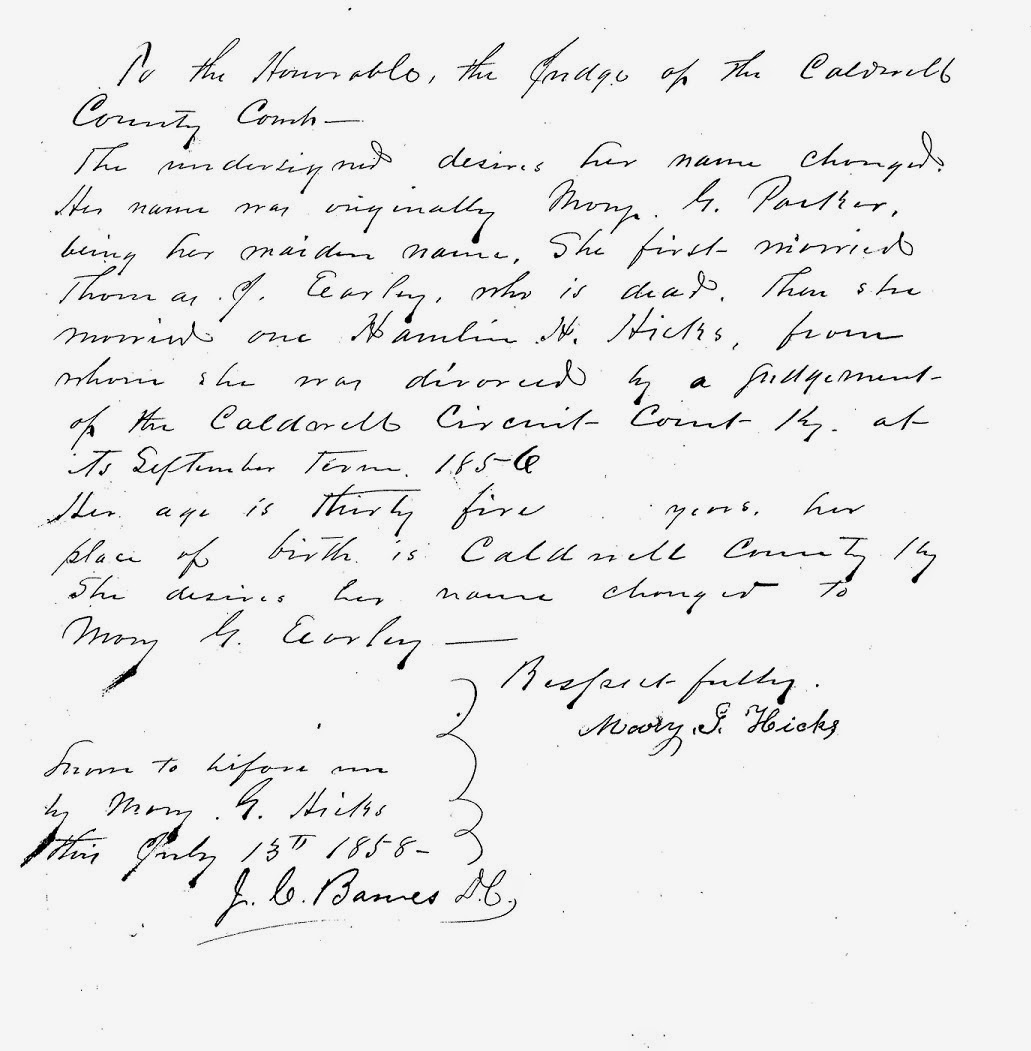 To the Honorable, the Judge of the Caldwell
County Court—
The undersigned desires her name changed.
Her name was originally Mary. G. Parker,
being her maiden name. She first married
Thomas. J. Earley, who is dead. Then she
married one Hamlin H. Hicks, from
whom she was divorced by a Judgement
of the Caldwell Circuit Court Ky. at
its September Term. 1856
Her age is thirty five years. her
place of birth is Caldwell County Ky
She desires her name changed to
Mary G. Earley —
Respectfully.
Mary. G. Hicks
Sworn to before me
by Mary. G. Hicks
this July 13th 1858-
J. C. Barnes D.C.